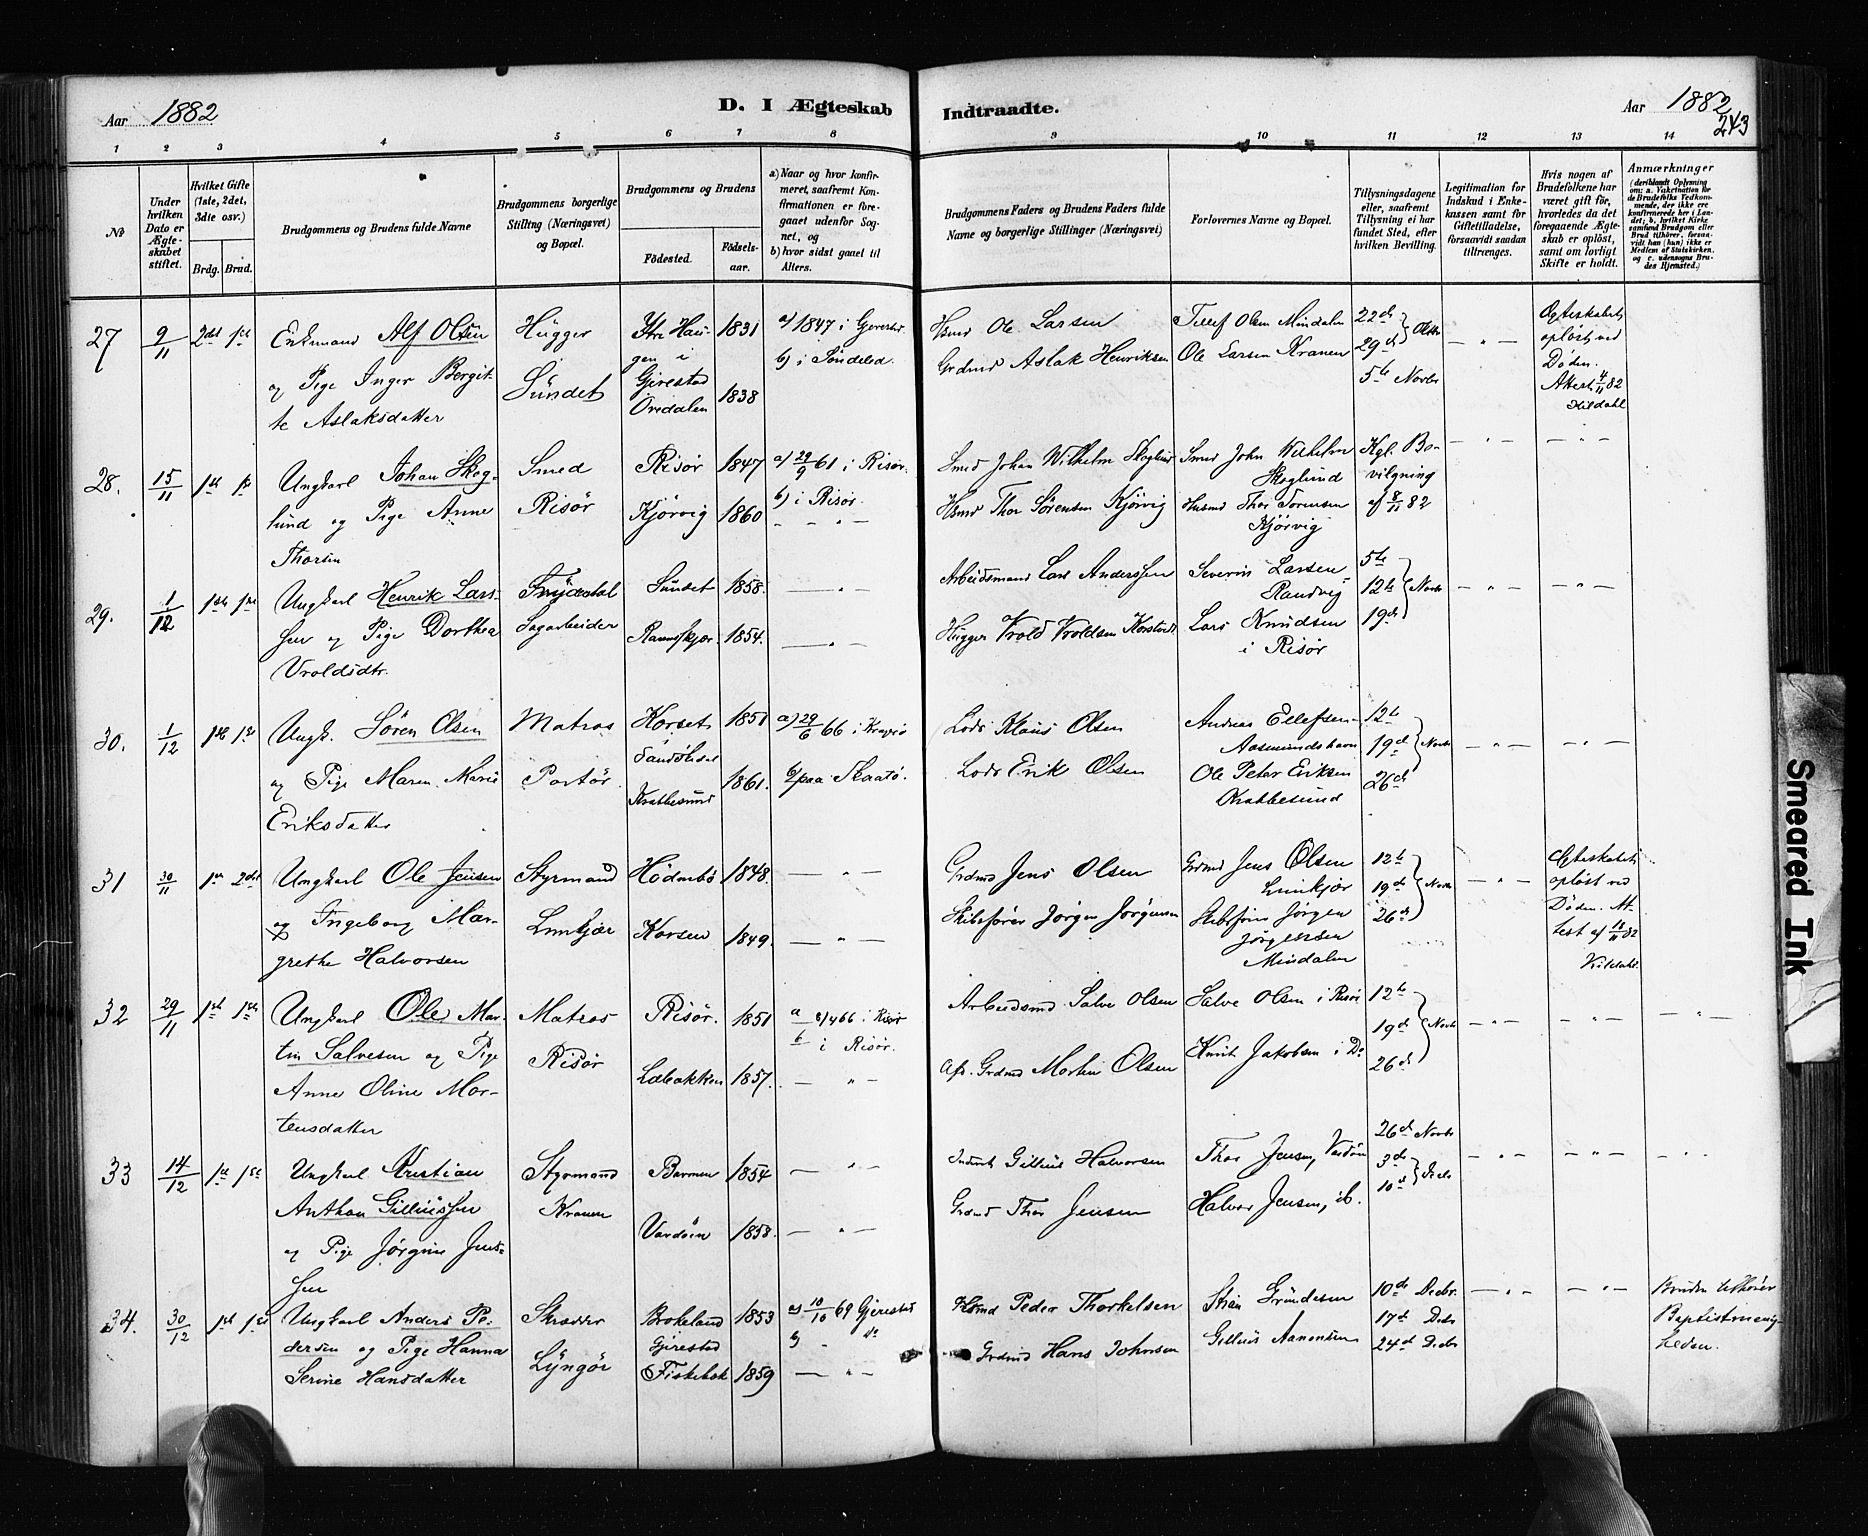 Aar 1882
D. I Ægteskab
Indtraadte.
Aar 1882
243
1 2 3 4 5 6 7 8 9 10 11 12 13 14
No
Under hvilken Dato er Ægteskabet stiftet.
Hvilket Gifte (1ste, 2det, 3die osv.)
Brdg. Brud.
Brudgommens og Brudens fulde Navne
Brudgommens borgerlige Stilling (Næringsvei) og Bopæl.
Brudgommens og Brudens
Födested.
Födselsaar.
a) Naar og hvor konfirmeret, saafremt Konfirmationen er foregaaet udenfor Sognet, og
b) hvor sidst gaaet til Alters.
Brudgommens Faders og Brudens Faders fulde Navne og borgerlige Stillinger (Næringsvei)
Forlovernes Navne og Bopæl.
Tillysningsdagene eller, saafremt Tillysning ei har fundet Sted, efter hvilken Bevilling.
Legitimation for Indskud i Enkekassen samt for Giftetilladelse, forsaavidt saadan tiltrænges.
Hvis nogen af Brudefolkene har været gift før, hvorledes da det foregaaende Ægteskab er opløst, samt om lovligt Skifte er holdt.
Anmærkninger
(deriblandt Oplysning om: a. Vakcination for de Brudefolks Vedkommende, der ikke ere konfirmerede her i Landet; b. hvilket Kirkesamfund Brudgom eller Brud tilhører, forsaavidt han (hun) ikke er Medlem af Statskirken, og c. udensogns Brudes Hjemsted.)
27 9/11 2det 1ste Enkmand Alf Olsen
og Pige Inger Bergit-
te Aslaksdatter
Hugger
Sundet
Ytre Hau-
gen i
Gjerestad 1831
Öredalen 1838
a) 1847 i Gjerestd.
b) i Söndeled.
Hsmd Ole Larsen
Grdmd Aslak Henriksen
Tellef Olsen Mindalen
Ole Larsen Kranen
22de
29de Oktbr
5te Novbr
Ægteskabet
opløst ved
Døden.
Attest 4/11 82
Kildahl
28. 15/11 1ste 1ste Ungkarl Johan Skog-
lund og Pige Anne
Thorsen
Smed
Risør
Risør 1847
Kjörvig 1860
a) 29/9 61 i Risør.
b) i Risør.
Smed Johan Wilhelm Skoglund
Hsmd Thor Sørensen Kjörvig
Smed John Wilhelm
Skoglund
Husmd Thor Sorensen
Kjörvig
Kgl. Be-
vilgning
af 8/11 82
29. 1/12 1ste 1ste Ungkarl Henrik Lars-
sen og Pige Dorthea
Vroldsdtr.
Frydendal
Sagarbeider
Sundet 1858.
Ravnskjær 1854.
Arbeidsmand Lars Anderssen
Hugger Vrold Vroldsen
Severin Larsen
Randvig
Lars Knudsen
i Risør
5te
12te Novbr
19de
30. 1/12 1ste 1ste Ungk. Sören Olsen
og Pige Maren Marie
Eriksdatter
Matros
Portör.
Korset
Sandökedal 1851
Krabbesund 1861.
a) 29/6 66 i Kragerø
b) paa Skaatø.
Lods Klaus Olsen
Lods Erik Olsen
Andreas Ellefsen
Aasmundshavn
Ole Peter Eriksen
Krabbesund
12te
19de Novbr
26de
31 30/11 1ste 2det Ungkarl Ole Jensen
og Ingeborg Mar-
grethe Halvorsen
Styrmand
Linnkjær
Hödnebö 1848.
Korsen 1849.
Grdmd Jens Olsen
Skibsfører Jörgen Jörgensen
Grdmd Jens Olsen
Linnkjær
Skibsfører Jörgen
Jörgensen
Mindalen
12te
19de Novbr
26de
Ægteskabet
opløst ved
Døden. At-
test af 11/11 82
Kildahl
32 29/11 1ste 1ste Ungkarl Ole Mar-
tin Salvesen og Pige
Anne Oline Mor-
tensdatter
Matros
Risör
Risör. 1851
Løbakken 1857.
a 8/4 66 i Risør
b i Risør.
Arbeidsmd Salve Olsen
Afd. Grdmd Morten Olsen
Salve Olsen i Risør
Knut Jakobsen i Do
12te
19de Novbr
26de
33 14/12 1ste 1ste Ungkarl Kristian
Anthon Gilliussen
og Pige Jörgine Jens-
sen
Styrmand
Kranen
Barmen 1854
Vardöen 1858.
Inderst Gillius Halvorsen
Grdmd Thor Jensen
Thor Jensen, Vardöen
Halvor Jensen, ib.
26de Novbr
3de
10de Decbr
34. 30/12 1ste 1ste Ungkarl Anders Pe-
dersen og Pige Hanna
Serine Hansdatter
Skrædder
Lyngör
Brokeland 1853
Gjerestad
Fiskebæk 1859
a) 10/10 69 Gjerestad
b) do
Hsmd Peder Thorkelsen
Grdmd Hans Johnsen
Stian Gundesen
Gillius Aanonsen
10de Decbr.
17de Decbr
24de Decbr
Bruden tilhører
Baptistmenig-
heden.
Smeared Ink